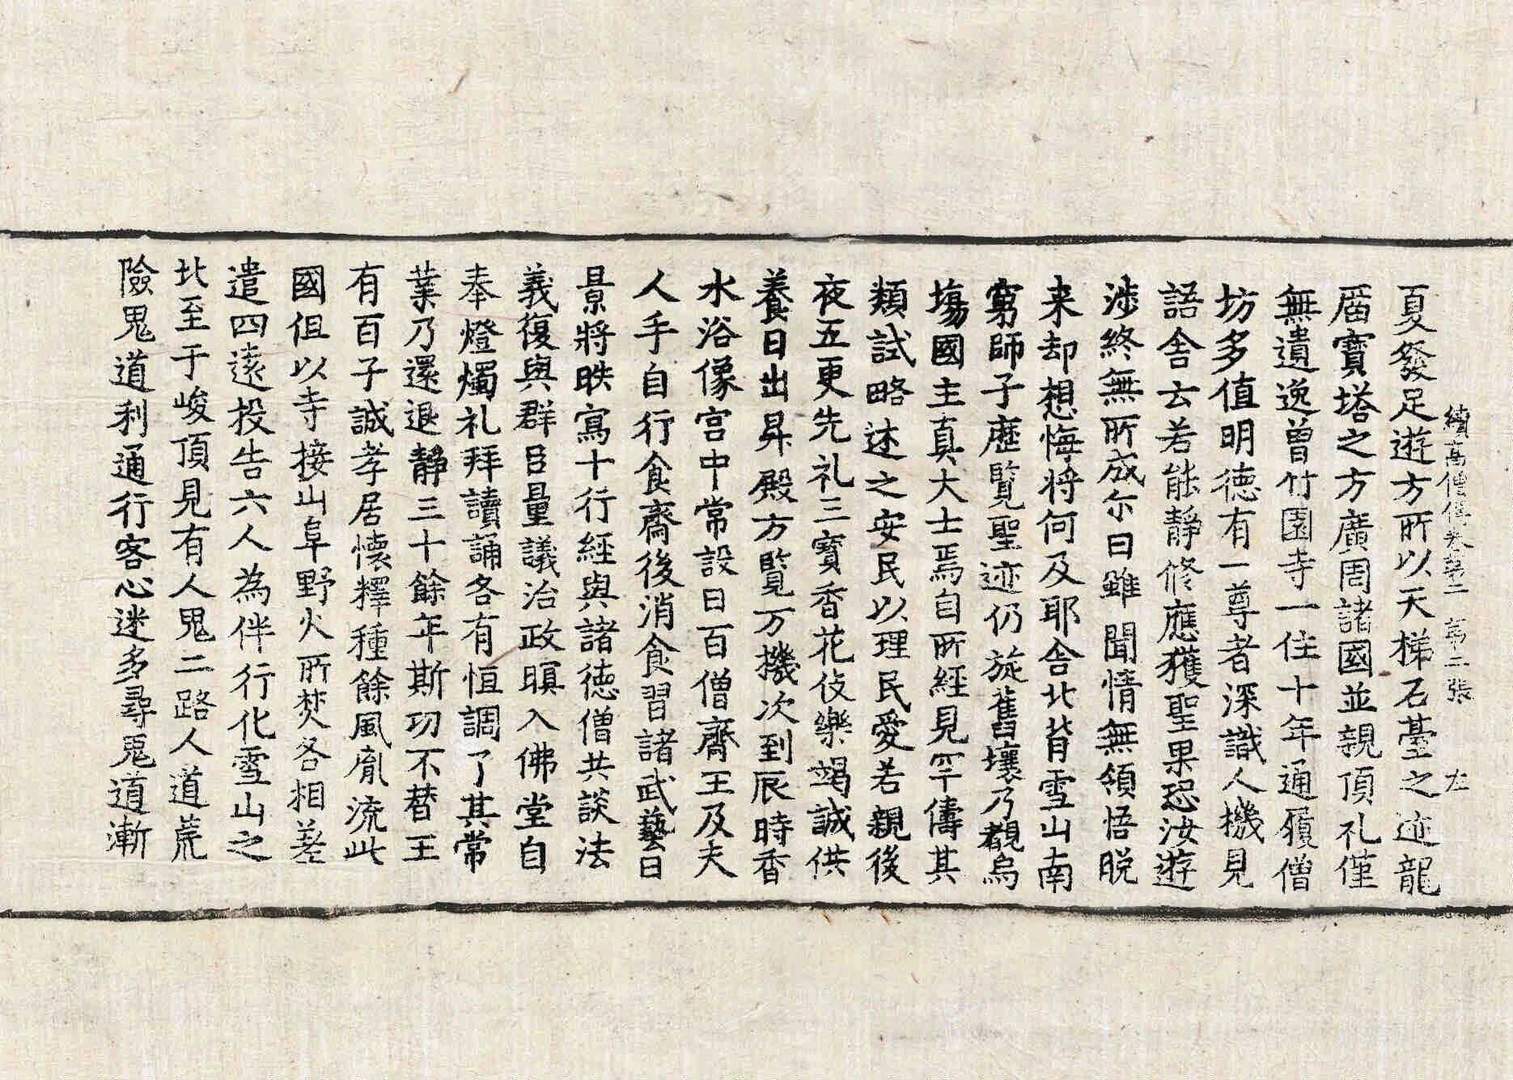 續高僧傳卷第二 第二張 左
夏發足遊方所以天梯石臺之迹龍
廟寶塔之方廣周諸國並親頂礼僅
無遺逸曾竹園寺一住十年通履僧
坊多值明徳有一尊者深識人機見
語舎云若能静修應獲聖果恐汝遊
涉終無所成尔日雖聞情無領悟脱
来却想悔将何及耶舎北背雪山南
窮師子歷覽聖迹仍旋舊壤乃覩烏
塲國主真大士焉自所經見罕儔其
類試略述之安民以理民愛若親後
夜五更先礼三寳香花伎樂竭誠供
養日出昇殿方覽万機次到辰時香
水浴像宫中常設日百僧齋王及夫
人手自行食齋後消食習諸武藝日
景将昳寫十行經與諸徳僧共談法
義復與群臣量議治政瞑入佛堂自
奉燈燭礼拜讀誦各有恒調了其常
業乃還退静三十餘年斯功不替王
有百子誠孝居懐釋種餘風胤流此
國但以寺接山阜野火所焚各相差
遣四遠投告六人為伴行化雪山之
北至于峻頂見有人鬼二路人道荒
險鬼道利通行客心迷多尋鬼道漸